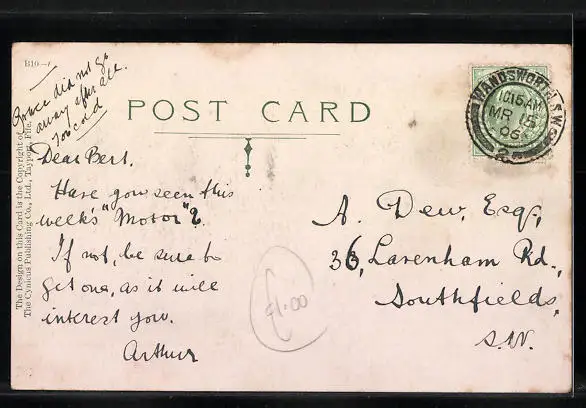 B10-1
Grace did not go
away after all.
Too cold
POST CARD
WANDSWORTH S.W.
10.15 AM
MR 15
06
Dear Bert.
Have you seen this
week's "Motor"?
If not, be sure to
get one, as it will
interest you.
Arthur
A. Dew, Esq.,
36, Lavenham Rd.,
Southfields,
S.W.
£1.00
The Design on this Card is the Copyright of
The Cynicus Publishing Co., Ltd., Tayport, Fife.